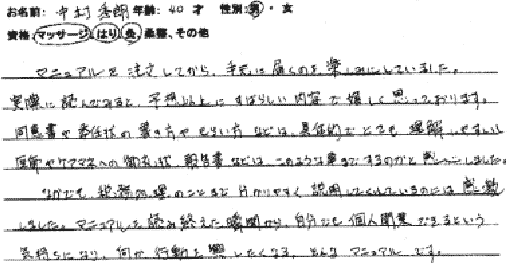 お名前: 中村 秀朗 年齢: 40 才 性別: 男・女
資格: マッサージ・はり・灸・柔整、その他
マニュアルを注文してから、手元に届くのを楽しみにしていました。
実際に読んでみると、予想以上にすばらしい内容で嬉しく思っております。
同意書や委任状の書き方やもらい方などは、具体的でとても理解しやすいし
医師やケアマネへの御礼状、報告書などは、このような事までするのかと感心しました。
なかでも、総務処理のことまで分かりやすく説明してくれているのには感激
しました。マニュアルを読み終えた瞬間から自分でも個人開業できるという
気持ちになり、何か行動を起したくなる、そんなマニュアルです。